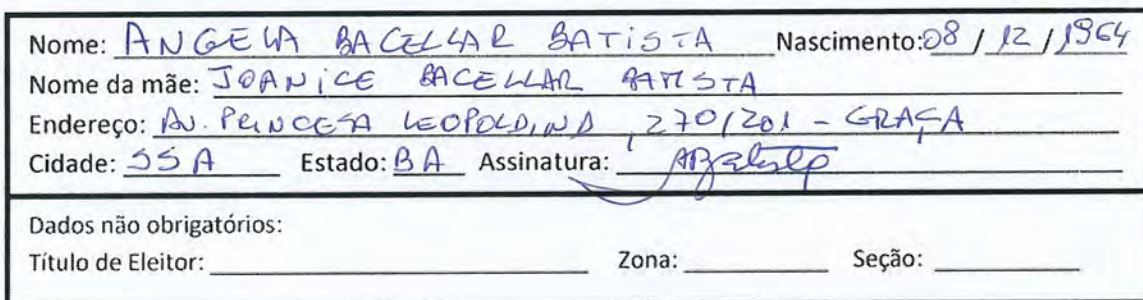 Nome: ANGELA BACELLAR BATISTA Nascimento: 08/12/1964
Nome da mãe: JOANICE BACELLAR BATISTA
Endereço: AV. PRINCESA LEOPOLDINA, 270/201 - GRAÇA
Cidade: SSA Estado: BA Assinatura:
Dados não obrigatórios:
Título de Eleitor: Zona: Seção: